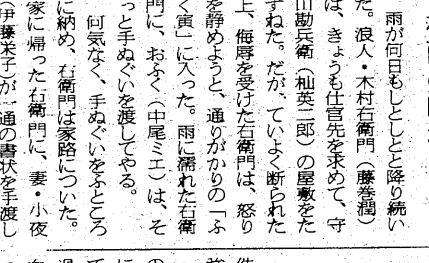 雨が何日もしとしとと降り続い
た。浪人・木村右衛門(藤巻潤)
は、きょうも仕官先を求めて、守
山勘兵衛(杣英二郎)の屋敷をた
ずねた。だが、ていよく断られた
上、侮辱を受けた右衛門は、怒り
を静めようと、通りがかりの「ふ
く寅」に入った。雨に濡れた右衛
門に、おふく(中尾ミエ)は、そ
っと手ぬぐいを渡してやる。
何気なく、手ぬぐいをふところ
に納め、右衛門は家路についた。
家に帰った右衛門に、妻・小夜
(伊藤栄子)が一通の書状を手渡し